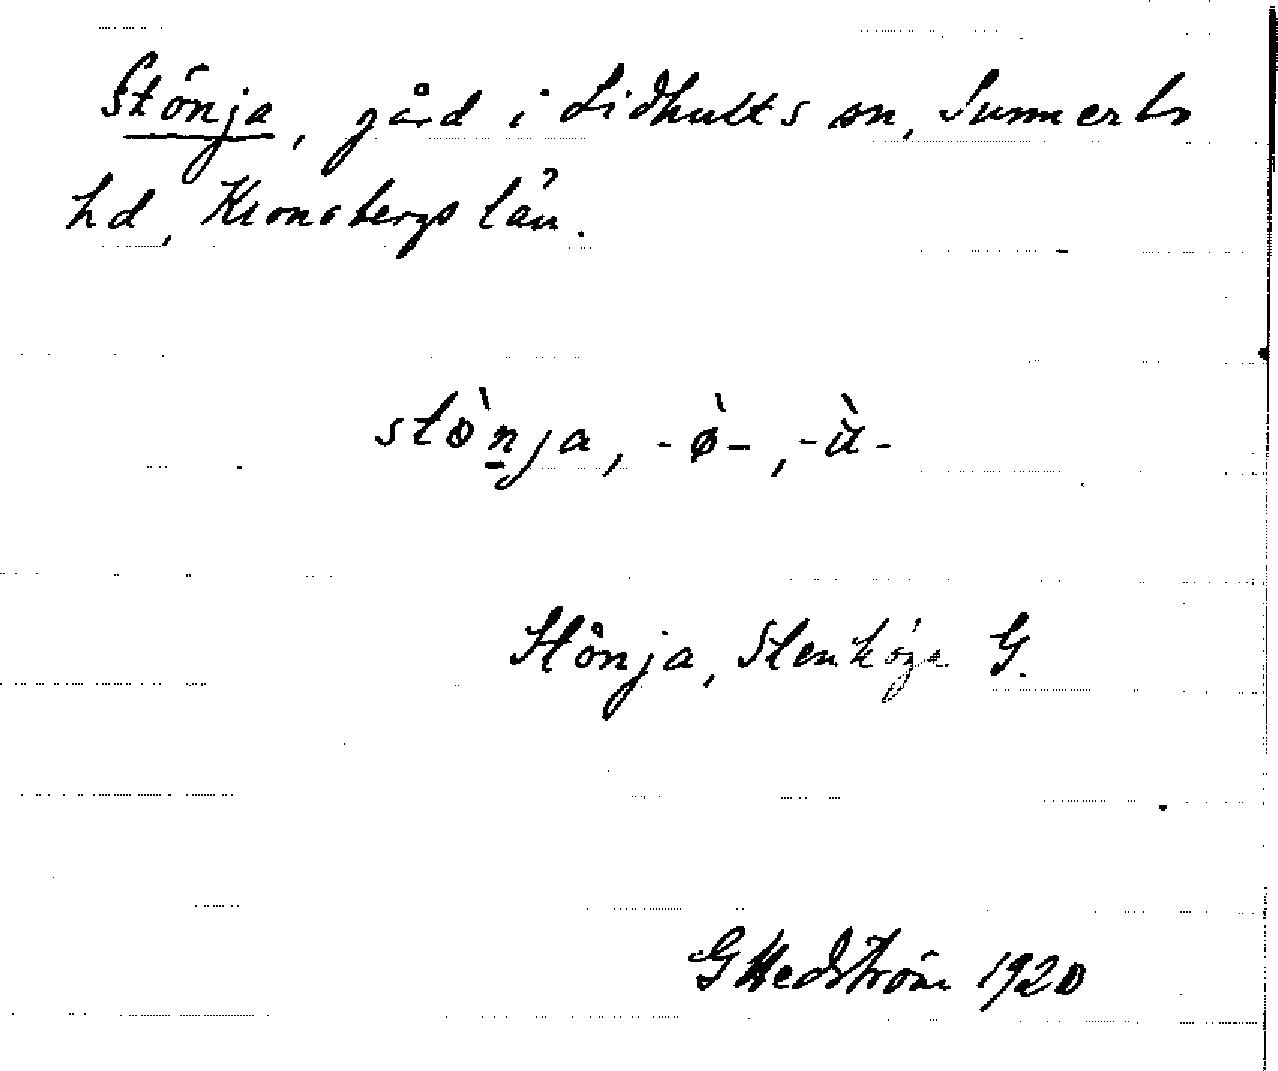 Stönja, gård i Lidhults sn, Sunnerbo
hd, Kronobergs län.
stò̱nja, -ø̀-, -ù-
Stånja, Stenhöga G.
G Hedström 1920